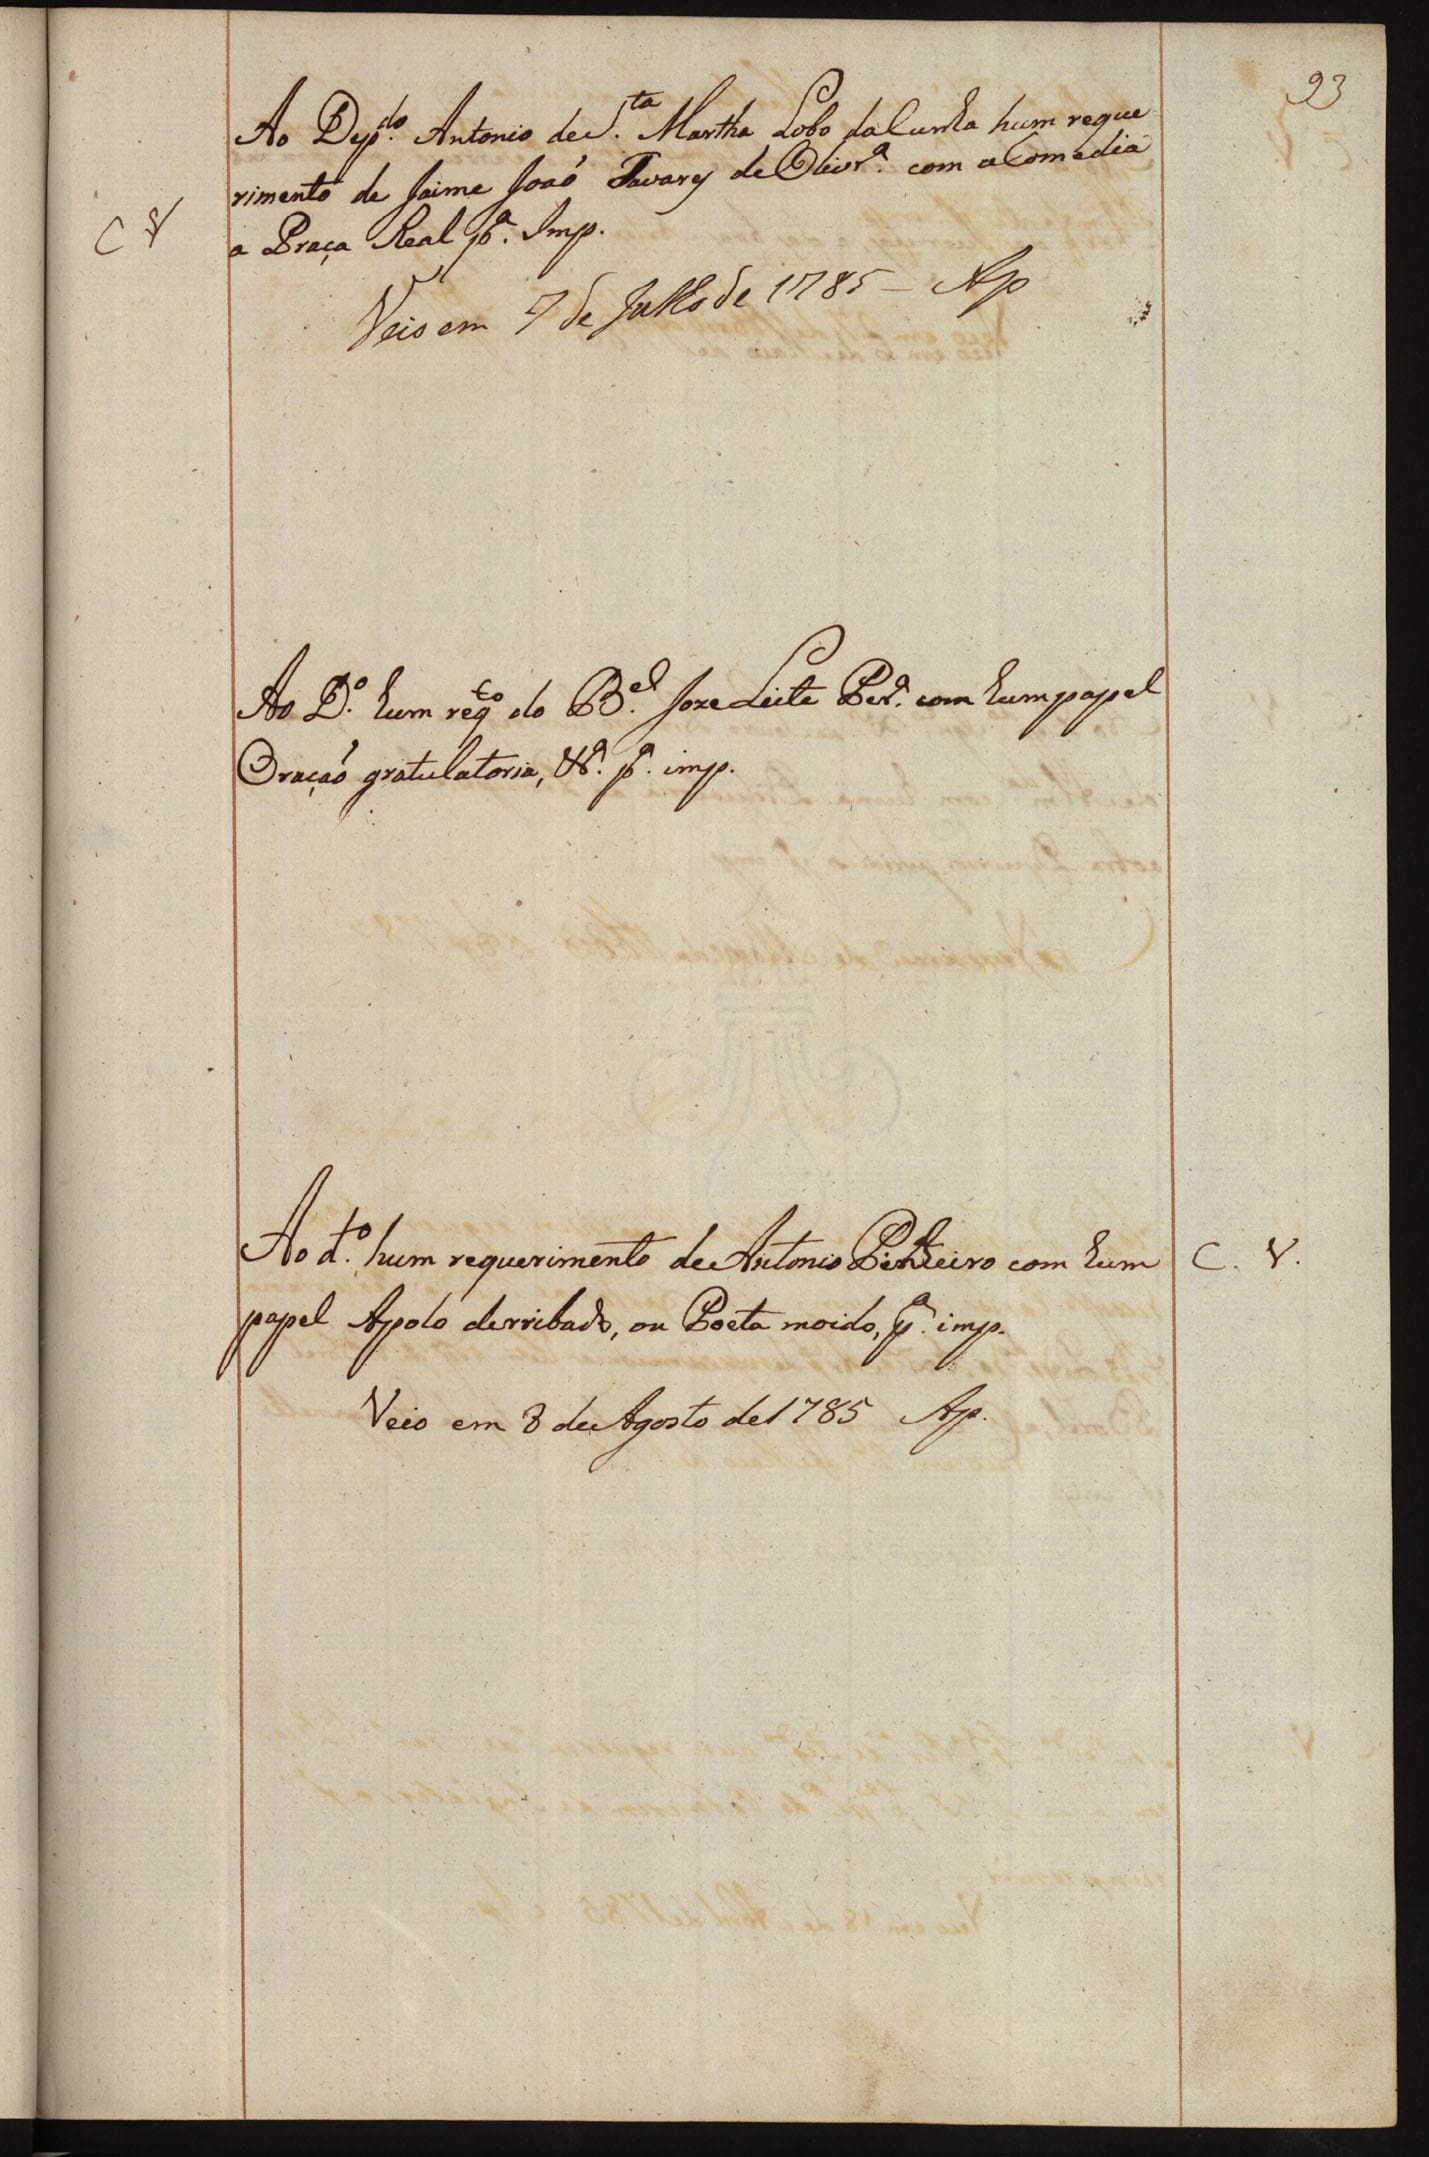 93
Ao Dep.do Antonio de S.ta Martha Lobo da Cunha hum reque
rimento de Jaime Joaó Tavares de Olivr.a com a Comedia
C V
a Praça Real p.a Imp.
Veio em 7 de Julho de 1785 - Ap
Ao D.o hum reqto do B.el Joze Leite Per.a com hum papel
Oraçaó gratulatoria, &.a p.a imp.
Ao d.to hum requerimento de Antonio Pinheiro com hum
C. V.
papel Apolo derribado, ou Poeta moido, p.a imp.
Veio em 8 de Agosto de 1785 Ap.